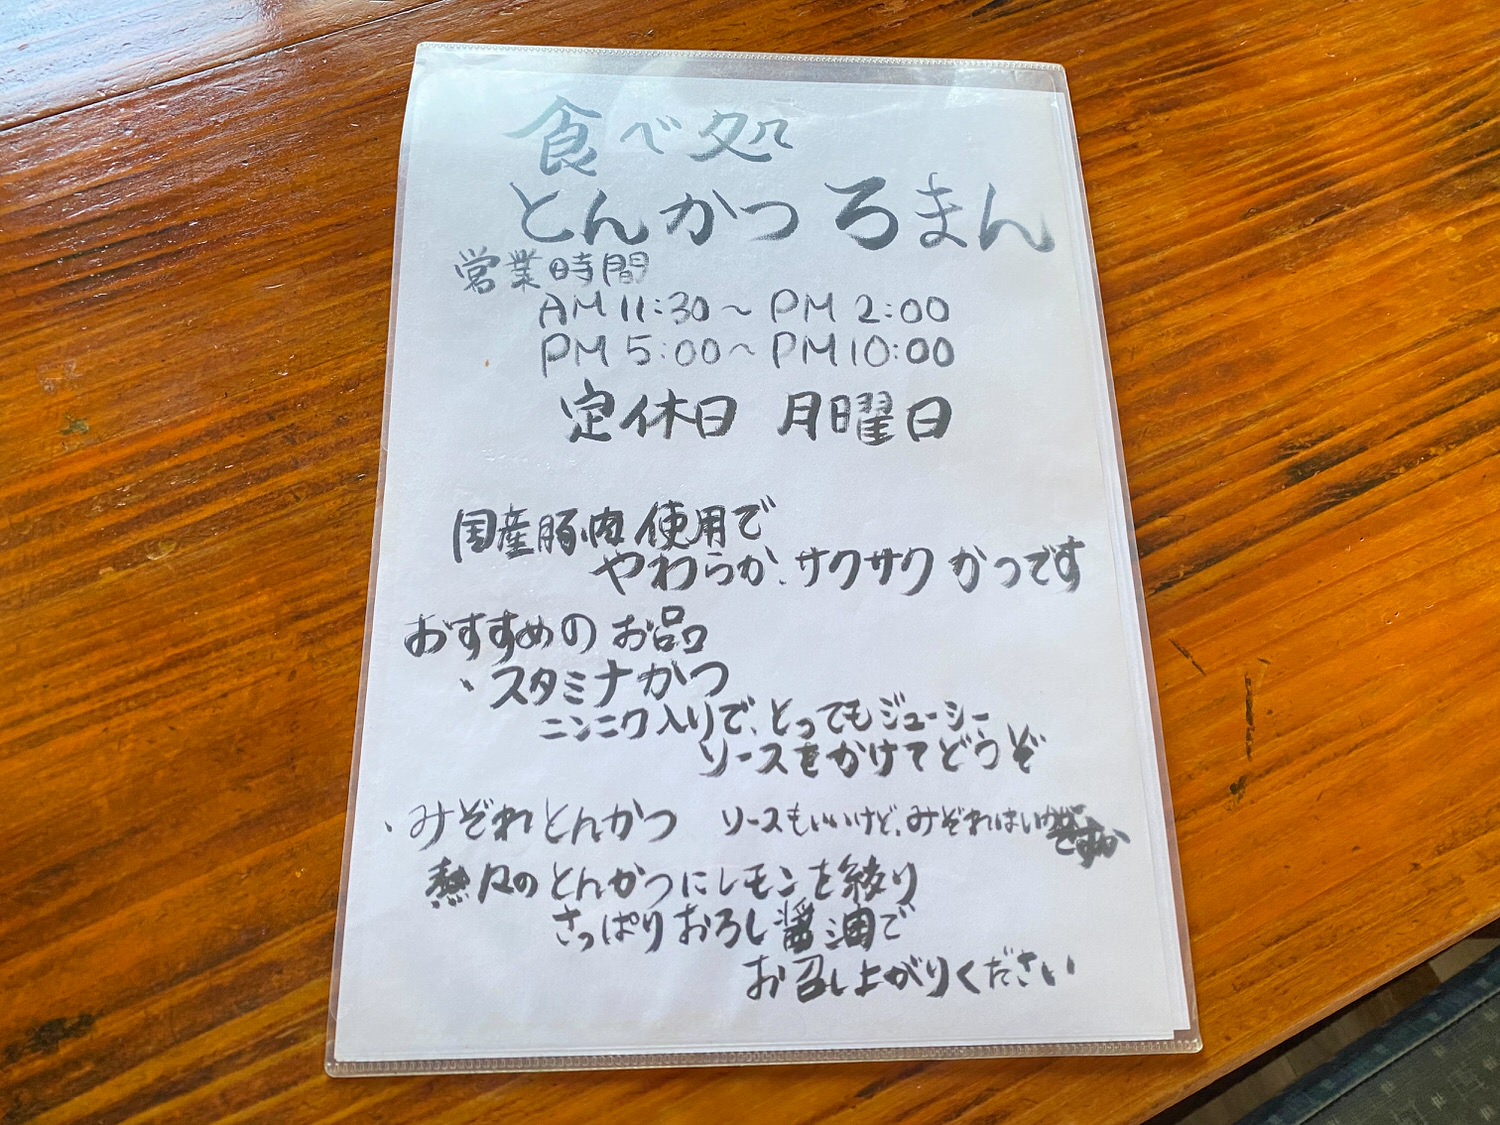 食べ処
とんかつ ろまん
営業時間
AM 11:30～PM 2:00
PM 5:00～PM 10:00
定休日 月曜日
国産豚肉使用で
やわらか、サクサク かつです
おすすめの お品
・スタミナかつ
ニンニク入りで、とってもジューシー
ソースをかけてどうぞ
・みぞれとんかつ ソースもいいけど、みぞれはいかが
ですか
熱々のとんかつにレモンを絞り
さっぱりおろし醤油で
お召し上がりください